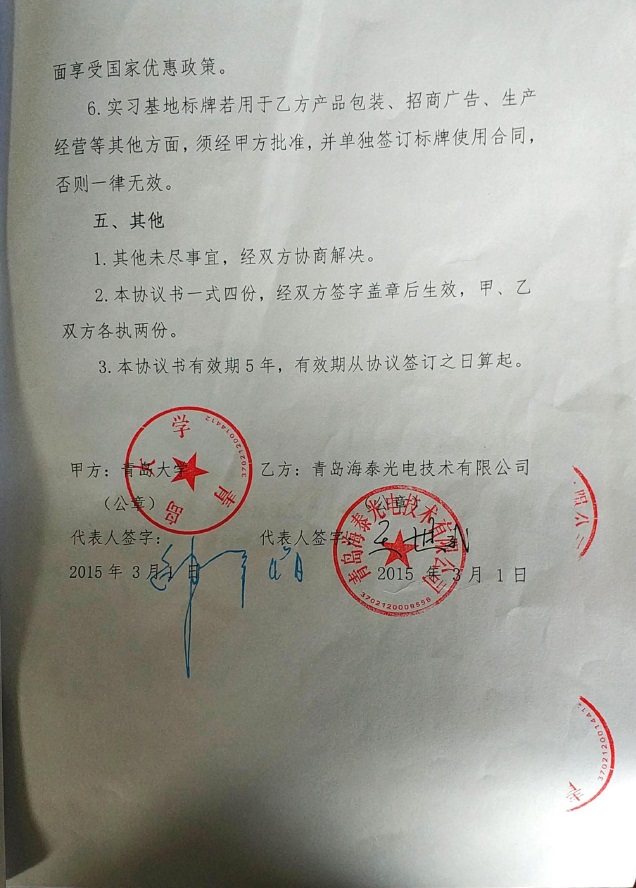 面享受国家优惠政策。
6.实习基地标牌若用于乙方产品包装、招商广告、生产
经营等其他方面，须经甲方批准，并单独签订标牌使用合同，
否则一律无效。
五、其他
1.其他未尽事宜，经双方协商解决。
2.本协议书一式四份，经双方签字盖章后生效，甲、乙
双方各执两份。
3.本协议书有效期5年，有效期从协议签订之日算起。
甲方：青岛大学 乙方：青岛海泰光电技术有限公司
（公章） （公章）
代表人签字： 代表人签字
2015年3月1日 2015年3月1日
青岛大学
3702120014412
青岛海泰光电技术有限公司
3702120009859
3702120014412